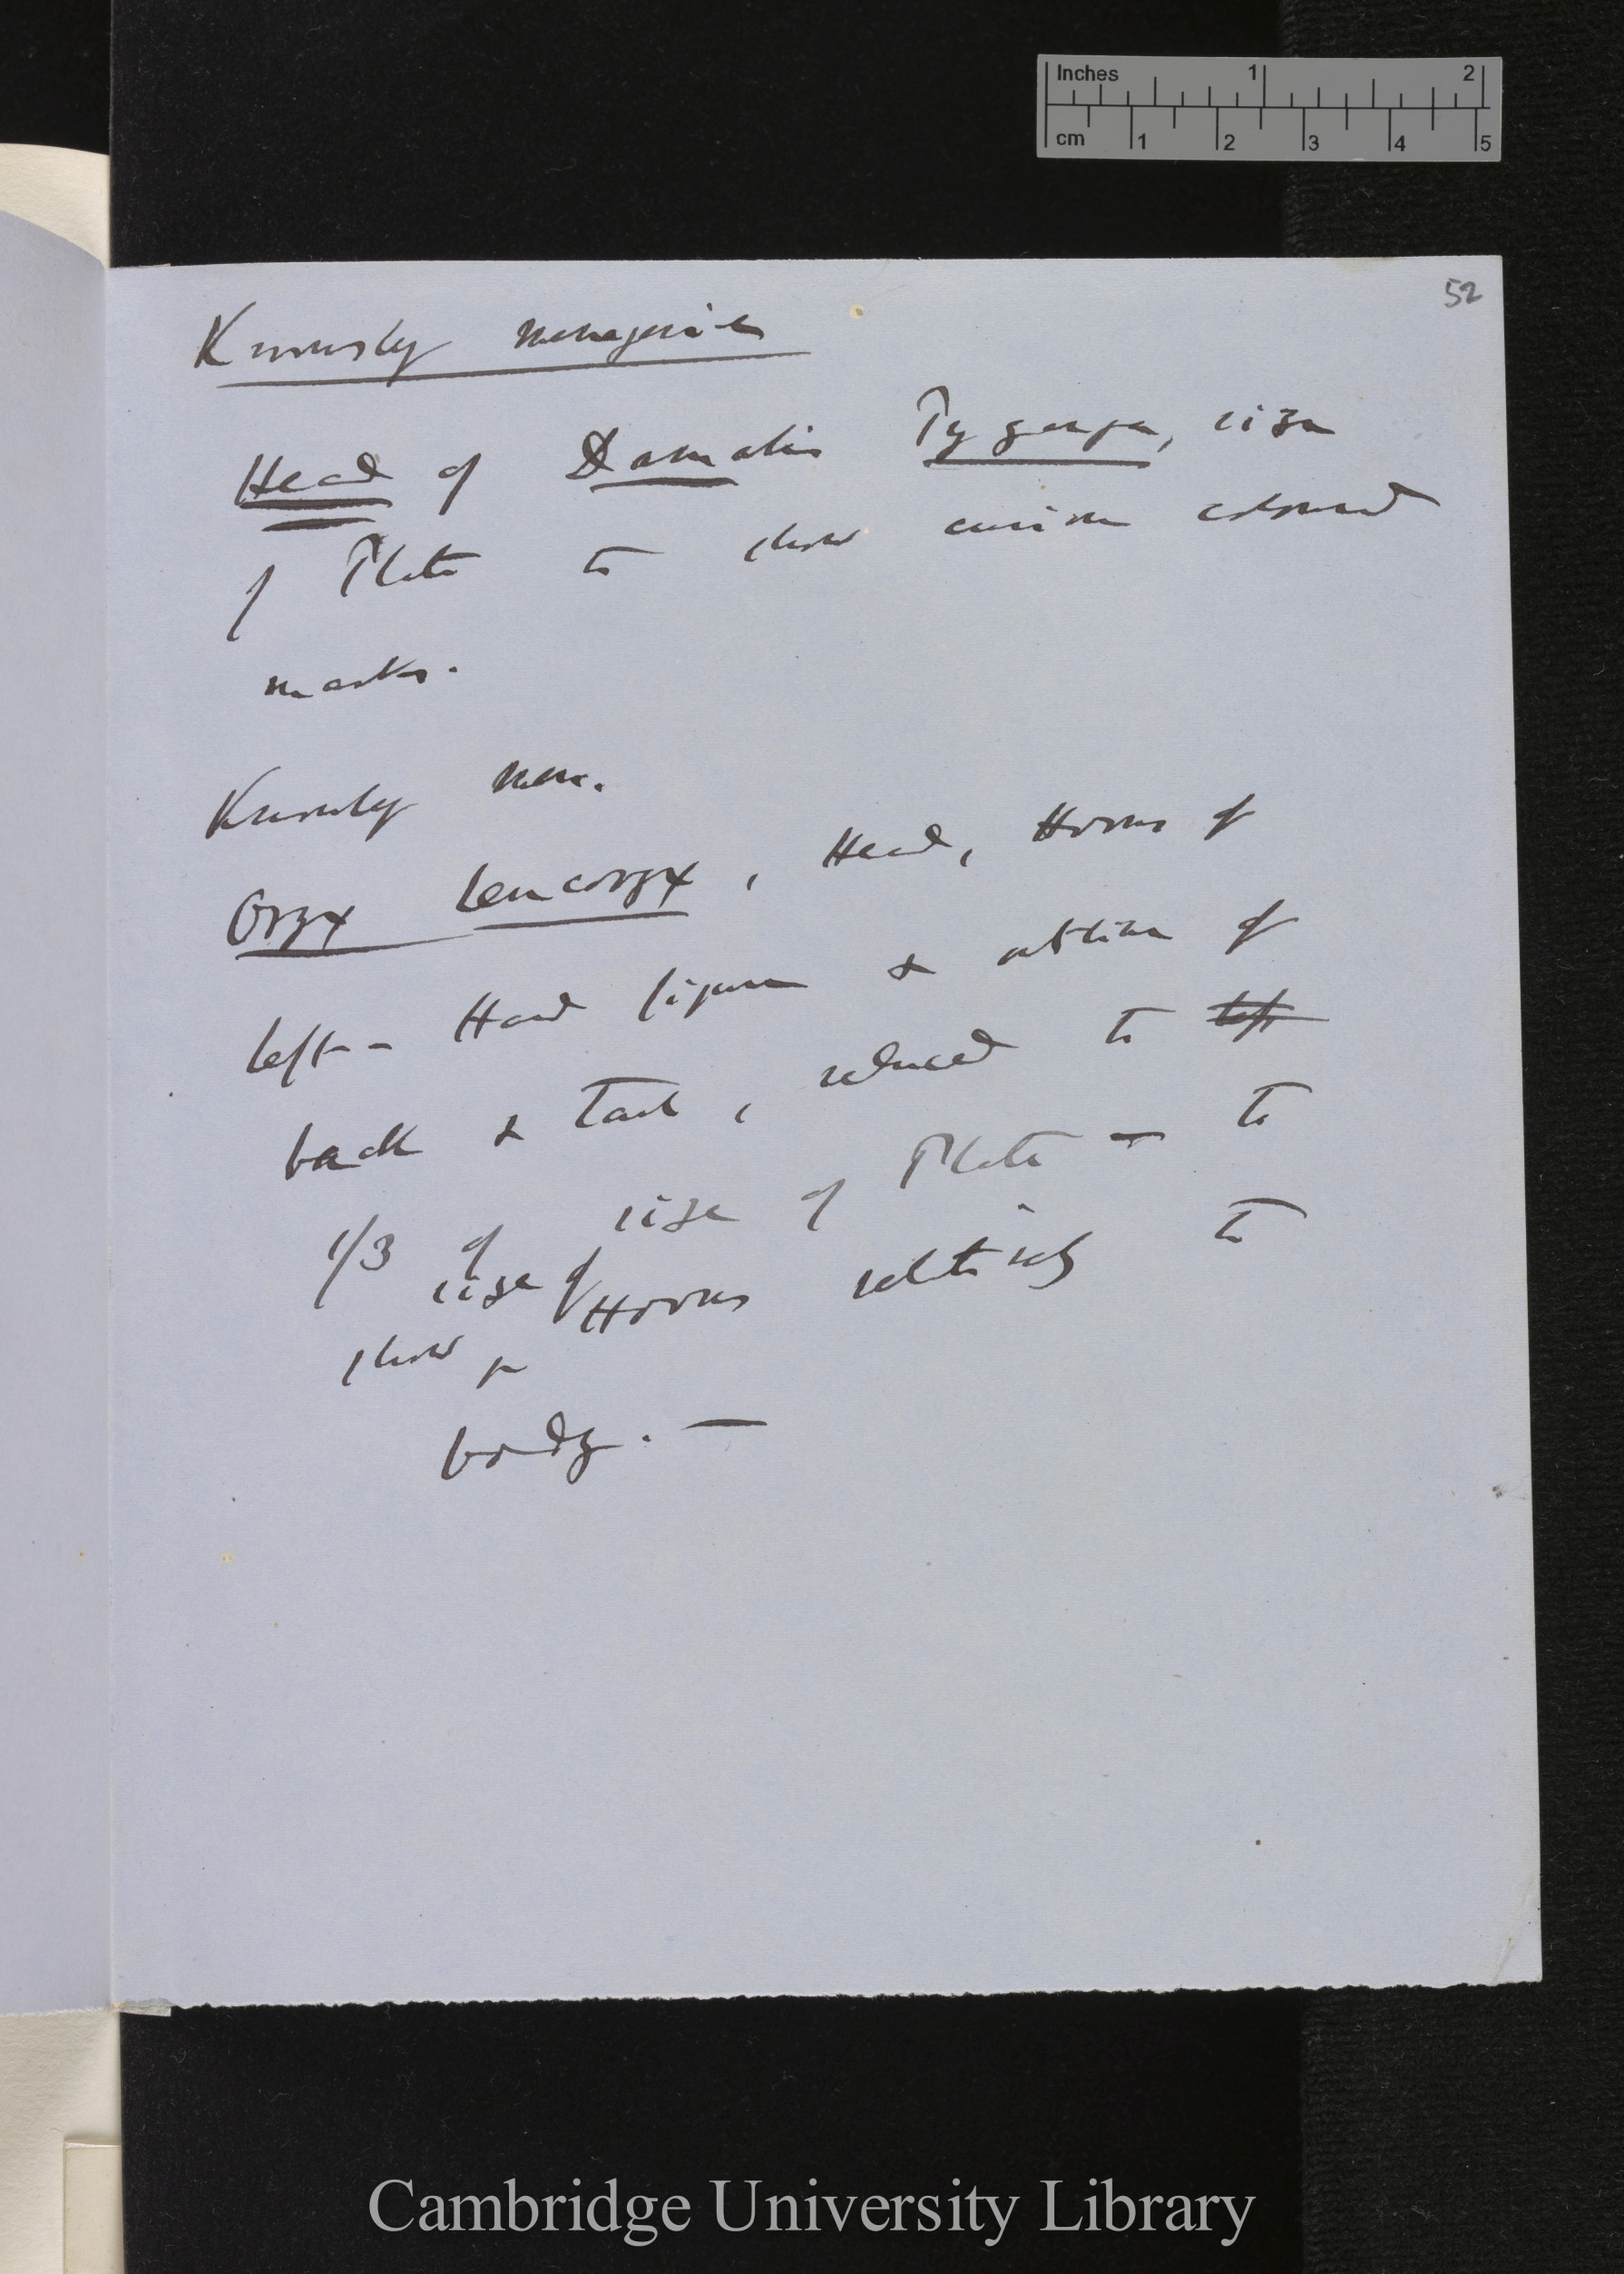 Inches 1 2
cm 1 2 3 4 5
52
Knowsley Menagerie
Head of Damalis Pygarga, size
of Plate to show curious coloured
marks.
Knowsley Men.
Oryx Leucoryx, Head, Horns of
left-Hand figure & outline of
back & Tail, reduced to left
1/3 of size of Plate — to
size of
show ^ Horns relatively to
body. —
Cambridge University Library